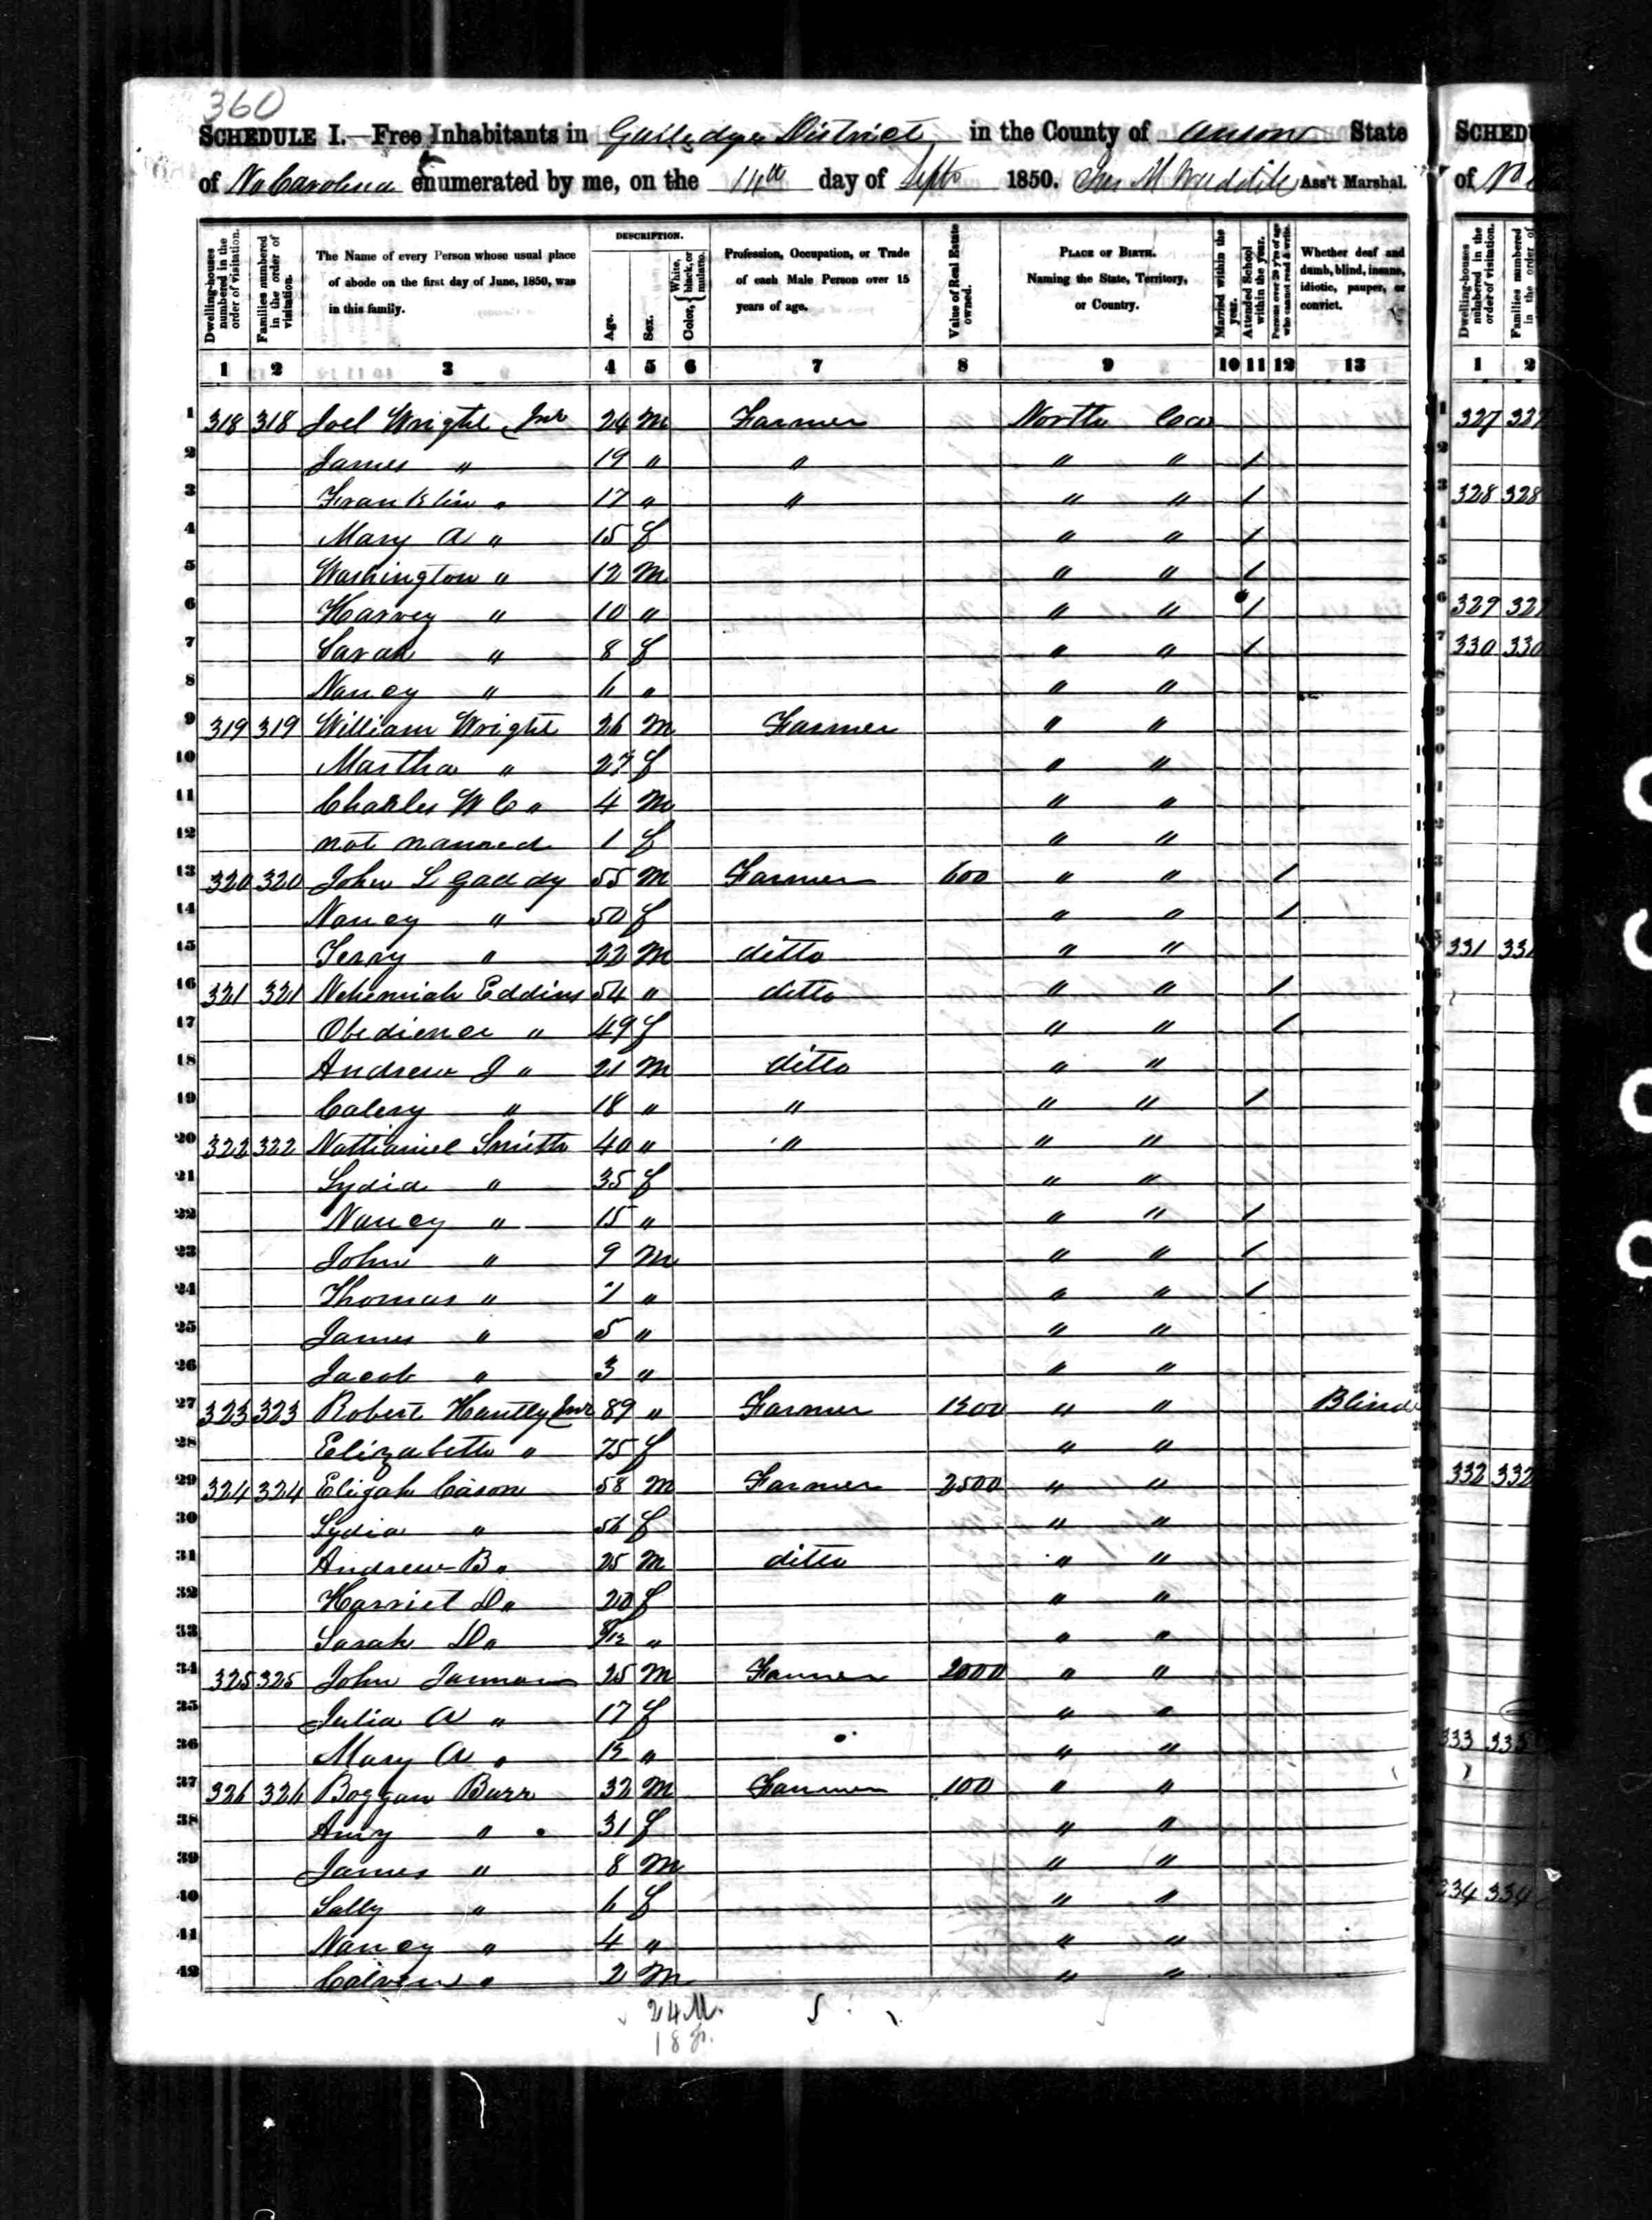 360
SCHEDULE I.—Free Inhabitants in Gulledges District in the County of Anson State
of No Carolina enumerated by me, on the 14th day of Septr 1850. Ass't Marshal.
Dwelling-houses numbered in the order of visitation.
Families numbered in the order of visitation.
The Name of every Person whose usual place of abode on the first day of June, 1850, was in this family.
DESCRIPTION.
Age.
Sex.
Color, { White, black, or mulatto.
Profession, Occupation, or Trade of each Male Person over 15 years of age.
Value of Real Estate owned.
PLACE OF BIRTH. Naming the State, Territory, or Country.
Married within the year.
Attended School within the year.
Persons over 20 y'rs of age who cannot read & write.
Whether deaf and dumb, blind, insane, idiotic, pauper, or convict.
1 2 3 4 5 6 7 8 9 10 11 12 13
1 318 318 Joel Wright Jnr 24 M Farmer North Caa
2 James " 19 " " " " /
3 Franklin " 17 " " " " /
4 Mary A " 15 f " " /
5 Washington " 12 M " " /
6 Harvey " 10 " " " /
7 Sarah " 8 f " " /
8 Nancy " 6 " " "
9 319 319 William Wright 26 M Farmer " "
10 Martha " 27 f " "
11 Charles W C " 4 M " "
12 not named 1 f " "
13 320 320 John L Gaddy 55 M Farmer 600 " " /
14 Nancy " 50 f " " /
15 Terry " 22 M ditto " "
16 321 321 Nehemiah Eddins 54 " ditto " " /
17 Obedience " 49 f " " /
18 Andrew J " 21 M ditto " "
19 " 18 " " " " /
20 322 322 Nathaniel Smith 40 " " " "
21 Lydia " 35 f " "
22 Nancy " 15 " " " /
23 John " 9 M " " /
24 Thomas " 7 " " " /
25 James " 5 " " "
26 Jacob " 3 " " "
27 323 323 Robert Huntley 89 " Farmer 1200 " " Blind
28 Elizabeth " 75 f " "
29 324 324 Elijah Cason 58 M Farmer 2500 " "
30 Lydia " 56 f " "
31 Andrew B " 25 M ditto " "
32 Harriet D " 20 f " "
33 Sarah D " 8/12 " " "
34 325 325 John Jarman 25 M Farmer 2000 " "
35 Julia A " 17 f " "
36 Mary A " " " "
37 326 326 Boggan Burr 32 M Farmer 100 " "
38 Amy " 31 f " "
39 James " 8 M " "
40 Sally " 6 f " "
41 Nancy " 4 " " "
42 Calvin " 2 M " "
24 M.
18 f.
SCHED
of
Dwelling-houses numbered in the order of visitation.
Families numbered in the order of
1 2
327 327
328 328
329 329
330 330
331 331
332 332
333 333
334 334